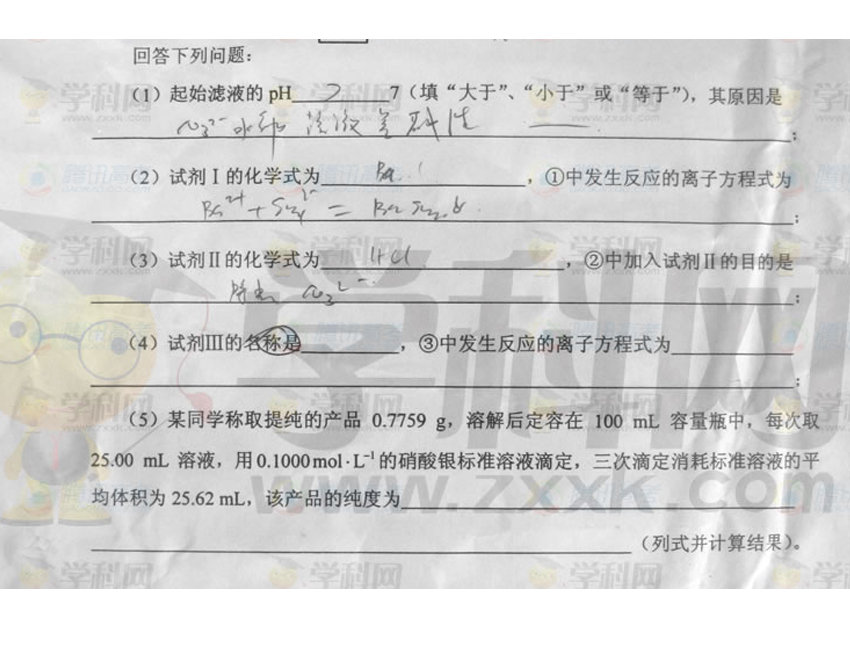 回答下列问题：
（1）起始滤液的 pH > 7（填“大于”、“小于”或“等于”），其原因是
水解 溶液呈碱性 ；
（2）试剂Ⅰ的化学式为 ，①中发生反应的离子方程式为
；
（3）试剂Ⅱ的化学式为 HCl ，②中加入试剂Ⅱ的目的是
；
（4）试剂Ⅲ的名称是 ，③中发生反应的离子方程式为
；
（5）某同学称取提纯的产品 0.7759 g，溶解后定容在 100 mL 容量瓶中，每次取
25.00 mL 溶液，用0.1000mol·L⁻¹的硝酸银标准溶液滴定，三次滴定消耗标准溶液的平
均体积为 25.62 mL，该产品的纯度为
（列式并计算结果）。
学科网
www.zxxk.com
腾讯高考